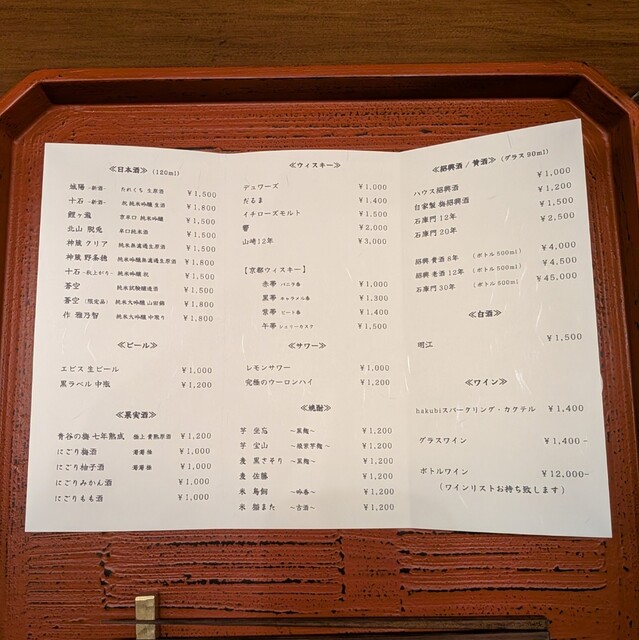 ≪日本酒≫ (120ml)
城陽 ~新酒~ たれくち 生原酒 ¥1,500
十石 ~新酒~ 祝 純米吟醸 生酒 ¥1,800
鯉ヶ瀧 京辛口 純米吟醸 ¥1,500
北山 脱兎 辛口純米酒 ¥1,500
神蔵 クリア 純米無濾過生原酒 ¥1,500
神蔵 野条穂 純米吟醸無濾過生原酒 ¥1,800
十石 純米吟醸 祝 ¥1,500
蒼空 純米試験醸造酒 ¥1,500
蒼空 (限定品) 純米大吟醸 山田錦 ¥1,800
作 雅乃智 純米大吟醸 中取り ¥1,800
≪ビール≫
エビス 生ビール ¥1,000
黒ラベル 中瓶 ¥1,200
≪果実酒≫
青谷の梅 七年熟成 極上 貴熟原酒 ¥1,200
にごり梅酒 ¥1,000
にごり柚子酒 ¥1,000
にごりみかん酒 ¥1,000
にごりもも酒 ¥1,000
≪ウィスキー≫
デュワーズ ¥1,000
だるま ¥1,400
イチローズモルト ¥1,500
響 ¥2,000
山崎12年 ¥3,000
【京都ウィスキー】
赤帯 バニラ香 ¥1,000
黒帯 キャラメル香 ¥1,300
紫帯 ピート香 ¥1,400
午帯 シェリーカスク ¥1,500
≪サワー≫
レモンサワー ¥1,000
究極のウーロンハイ ¥1,200
≪焼酎≫
芋 坐忘 ~黒麹~ ¥1,200
芋 宝山 ¥1,200
麦 黒さそり ~黒麹~ ¥1,200
麦 佐藤 ¥1,200
米 鳥飼 ~吟香~ ¥1,200
米 猫また ~古酒~ ¥1,200
≪紹興酒 / 黄酒≫ (グラス 90ml)
ハウス紹興酒 ¥1,000
自家製 梅紹興酒 ¥1,200
石庫門 12年 ¥1,500
石庫門 20年 ¥2,500
紹興 貴酒 8年 (ボトル 500ml) ¥4,000
紹興 老酒 12年 (ボトル 500ml) ¥4,500
石庫門 30年 (ボトル 500ml ¥45,000
≪白酒≫
明江 ¥1,500
≪ワイン≫
hakubiスパークリング・カクテル ¥1,400
グラスワイン ¥1,400~
ボトルワイン ¥12,000~
(ワインリストお持ち致します)